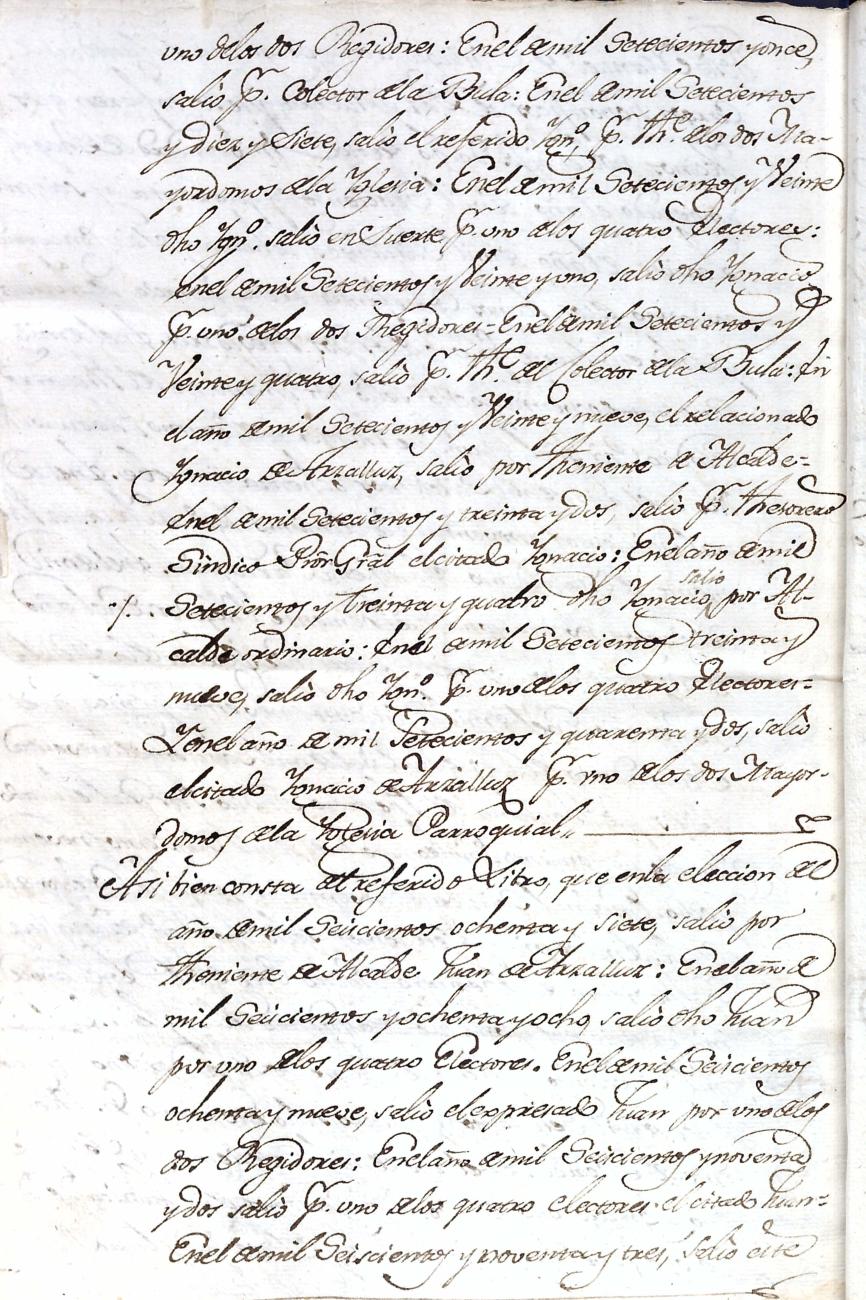 uno delos dos Regidores: Enel demil Setecientos yonce,
salio pr. Colector dela Bula: Enel demil Setecientos
y diez y Siete, salio el referido Ygno, pr. The. delos dos Ma-
yordomos dela Yglesia: Enel demil Setecientos y Veinte
dho Ygno. salio en Suerte pr. uno delos quatro Electores:
enel demil Setecientos y Veinte y uno, salio dho Ygnacio
pr. uno delos dos Rhegidores = Enel demil Setecientos y
Veinte y quatro, salio pr. The. del Colector dela Bula: En
el año demil Setecientos y Veinte y nueve, el relacionado
Ygnacio de Arzalluz, salio por Theniente de Alcalde =
Enel demil Setecientos y treinta y dos, salio pr. Thesorero
Sindico Pror Gral el citado Ygnacio: Enel año demil
salio
./. Setecientos y treinta y quatro dho Ygnacio, por Al-
calde ordinario: Enel demil Setecientos treinta y
nueve, salio dho Ygno. pr. uno delos quatro Electores =
Y enel año de mil Setecientos y quarenta y dos, salio
el citado Ygnacio de Arzalluz pr. uno delos dos Mayor-
domos dela Yglesia Parroquial,,
Asi bien consta del referido Libro, que enla eleccion del
año demil Seiscientos ochenta y siete, salio por
Theniente de Alcalde Juan de Arzalluz: Enel año de
mil Seiscientos y ochenta y ocho, salio dho Juan
por uno delos quatro Electores. Enel demil Seiscientos
ochenta y nueve, salio el expresado Juan por uno delos
dos Regidores: Enel año demil Seiscientos y noventa
y dos salio pr. uno delos quatro electores el citado Juan =
Enel demil Seiscientos y noventa y tres, salio este